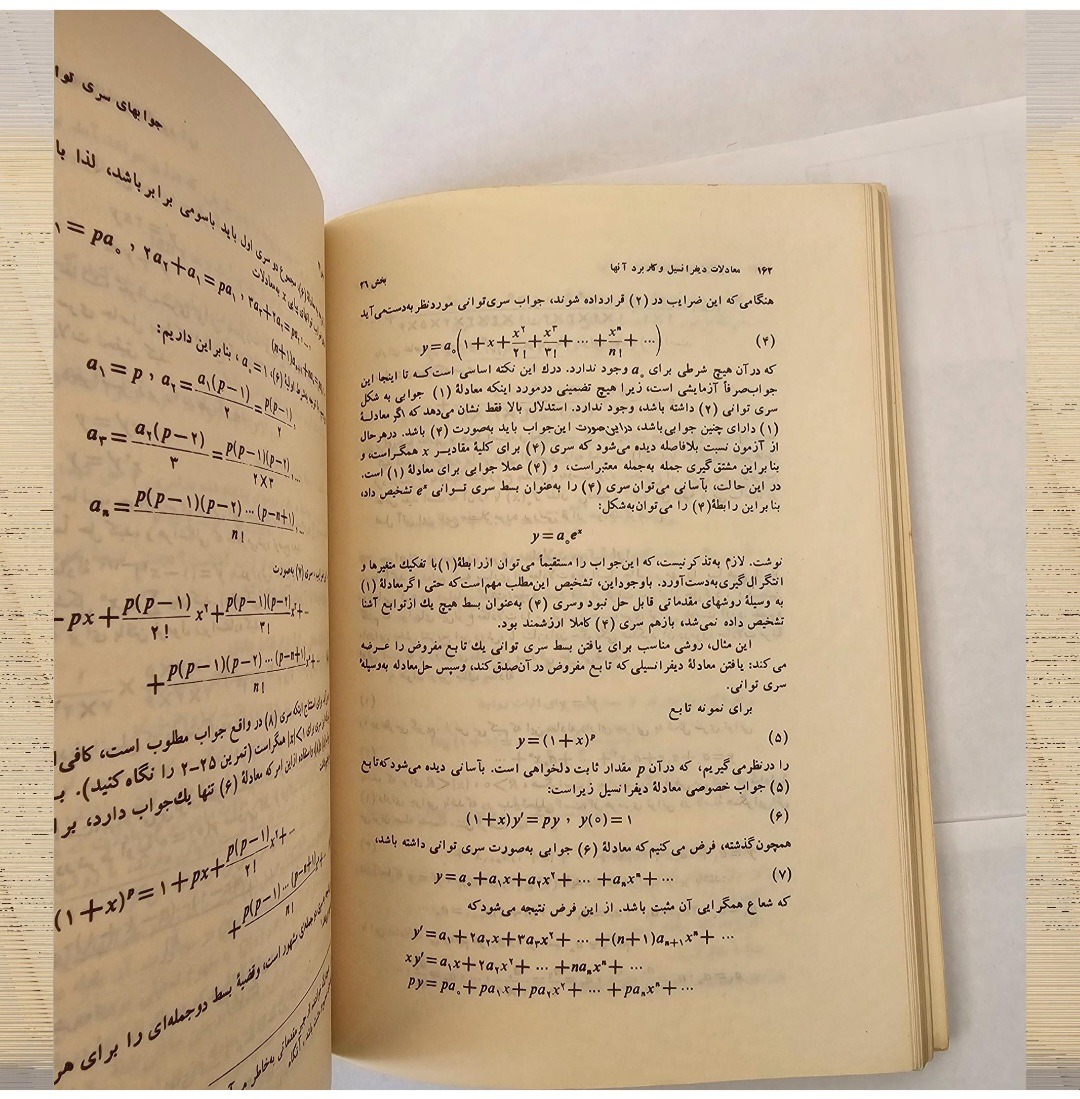 ۱۶۲ معادلات دیفرانسیل وکاربرد آنها بخش ۲۶
هنگامی‌که این ضرایب در (۲) قرارداده شوند، جواب سری‌توانی موردنظر به‌دست‌می‌آید
y=a₀(1+x+x²/۲!+x³/۳!+ ⋯ +xⁿ/n!+ ⋯) (۴)
که درآن هیچ شرطی برای a₀ وجود ندارد. درك این نکته اساسی است‌که تا اینجا این
جواب‌صرفاً آزمایشی است، زیرا هیچ تضمینی درمورد اینکه معادلهٔ (۱) جوابی به شکل
سری توانی (۲) داشته باشد، وجود ندارد. استدلال بالا فقط نشان می‌دهد که اگر معادلهٔ
(۱) دارای چنین جوابی باشد، دراین‌صورت این‌جواب باید به‌صورت (۴) باشد. درهرحال
از آزمون نسبت بلافاصله دیده می‌شود که سری (۴) برای کلیهٔ مقادیر x همگراست، و
بنابراین مشتق‌گیری جمله به‌جمله معتبراست، و (۴) عملا جوابی برای معادلهٔ (۱) است.
در این حالت، بآسانی می‌توان سری (۴) را به‌عنوان بسط سری توانی eˣ تشخیص داد،
بنابراین رابطهٔ (۴) را می‌توان به‌شکل:
y=a₀eˣ
نوشت. لازم به‌تذکرنیست، که این‌جواب را مستقیماً می‌توان ازرابطهٔ (۱) با تفکیك متغیرها و
انتگرال‌گیری به‌دست‌آورد. باوجوداین، تشخیص این‌مطلب مهم‌است‌که حتی اگرمعادلهٔ (۱)
به وسیلهٔ روشهای مقدماتی قابل حل نبود وسری (۴) به‌عنوان بسط هیچ یك ازتوابع آشنا
تشخیص داده نمی‌شد، بازهم سری (۴) کاملا ارزشمند بود.
این مثال، روشی مناسب برای یافتن بسط سری توانی یك تابع مفروض را عرضه
می‌کند: یافتن معادلهٔ دیفرانسیلی که تابع مفروض درآن‌صدق‌کند، وسپس حل‌معادله به‌وسیلهٔ
سری توانی.
برای نمونه تابع
y=(۱+x)ᵖ (۵)
را درنظرمی‌گیریم، که درآن p مقدار ثابت دلخواهی است. بآسانی دیده می‌شودکه‌تابع
(۵) جواب خصوصی معادلهٔ دیفرانسیل زیراست:
(۱+x)y′=py ، y(۰)=۱ (۶)
همچون‌گذشته، فرض می‌کنیم که معادلهٔ (۶) جوابی به‌صورت سری توانی داشته باشد،
y=a₀+a₁x+a₂x²+ ⋯ +aₙxⁿ+ ⋯ (۷)
که شعاع همگرایی آن مثبت باشد. از این فرض نتیجه می‌شودکه
y′=a₁+۲a₂x+۳a₃x²+ ⋯ +(n+۱)aₙ₊₁xⁿ+ ⋯
xy′=a₁x+۲a₂x²+ ⋯ +naₙxⁿ+ ⋯
py=pa₀+pa₁x+pa₂x²+ ⋯ +paₙxⁿ+ ⋯
جوابهای سری
مجموع دوسری اول باید باسومی برابرباشد، لذا با
=pa₀ ، ۲a₂+a₁=pa₁ ، ۳a₃+۲a₂=pa₂
بنابراین داریم:
a₁=p ، a₂=a₁(p−۱)/۲=p(p−۱)/۲،
a₃=a₂(p−۲)/۳=p(p−۱)(p−۲)/۲×۳،...
aₙ=p(p−۱)(p−۲)⋯(p−n+۱)/n!،...
سری (۷) به‌صورت
px+p(p−۱)/۲! x²+p(p−۱)(p−۲)/۳! x³+⋯
+p(p−۱)(p−۲)⋯(p−n+۱)/n! xⁿ+⋯
اینکه سری (۸) در واقع جواب مطلوب است، کافی
همگراست (تمرین ۲۵−۲ را نگاه‌کنید).
که معادلهٔ (۶) تنها یك‌جواب دارد،
(۱+x)ᵖ=۱+px+p(p−۱)/۲! x²+⋯
+p(p−۱)⋯(p−n+۱)/n! xⁿ+⋯
مشهور است، وقضیهٔ بسط دوجمله‌ای را برای هر